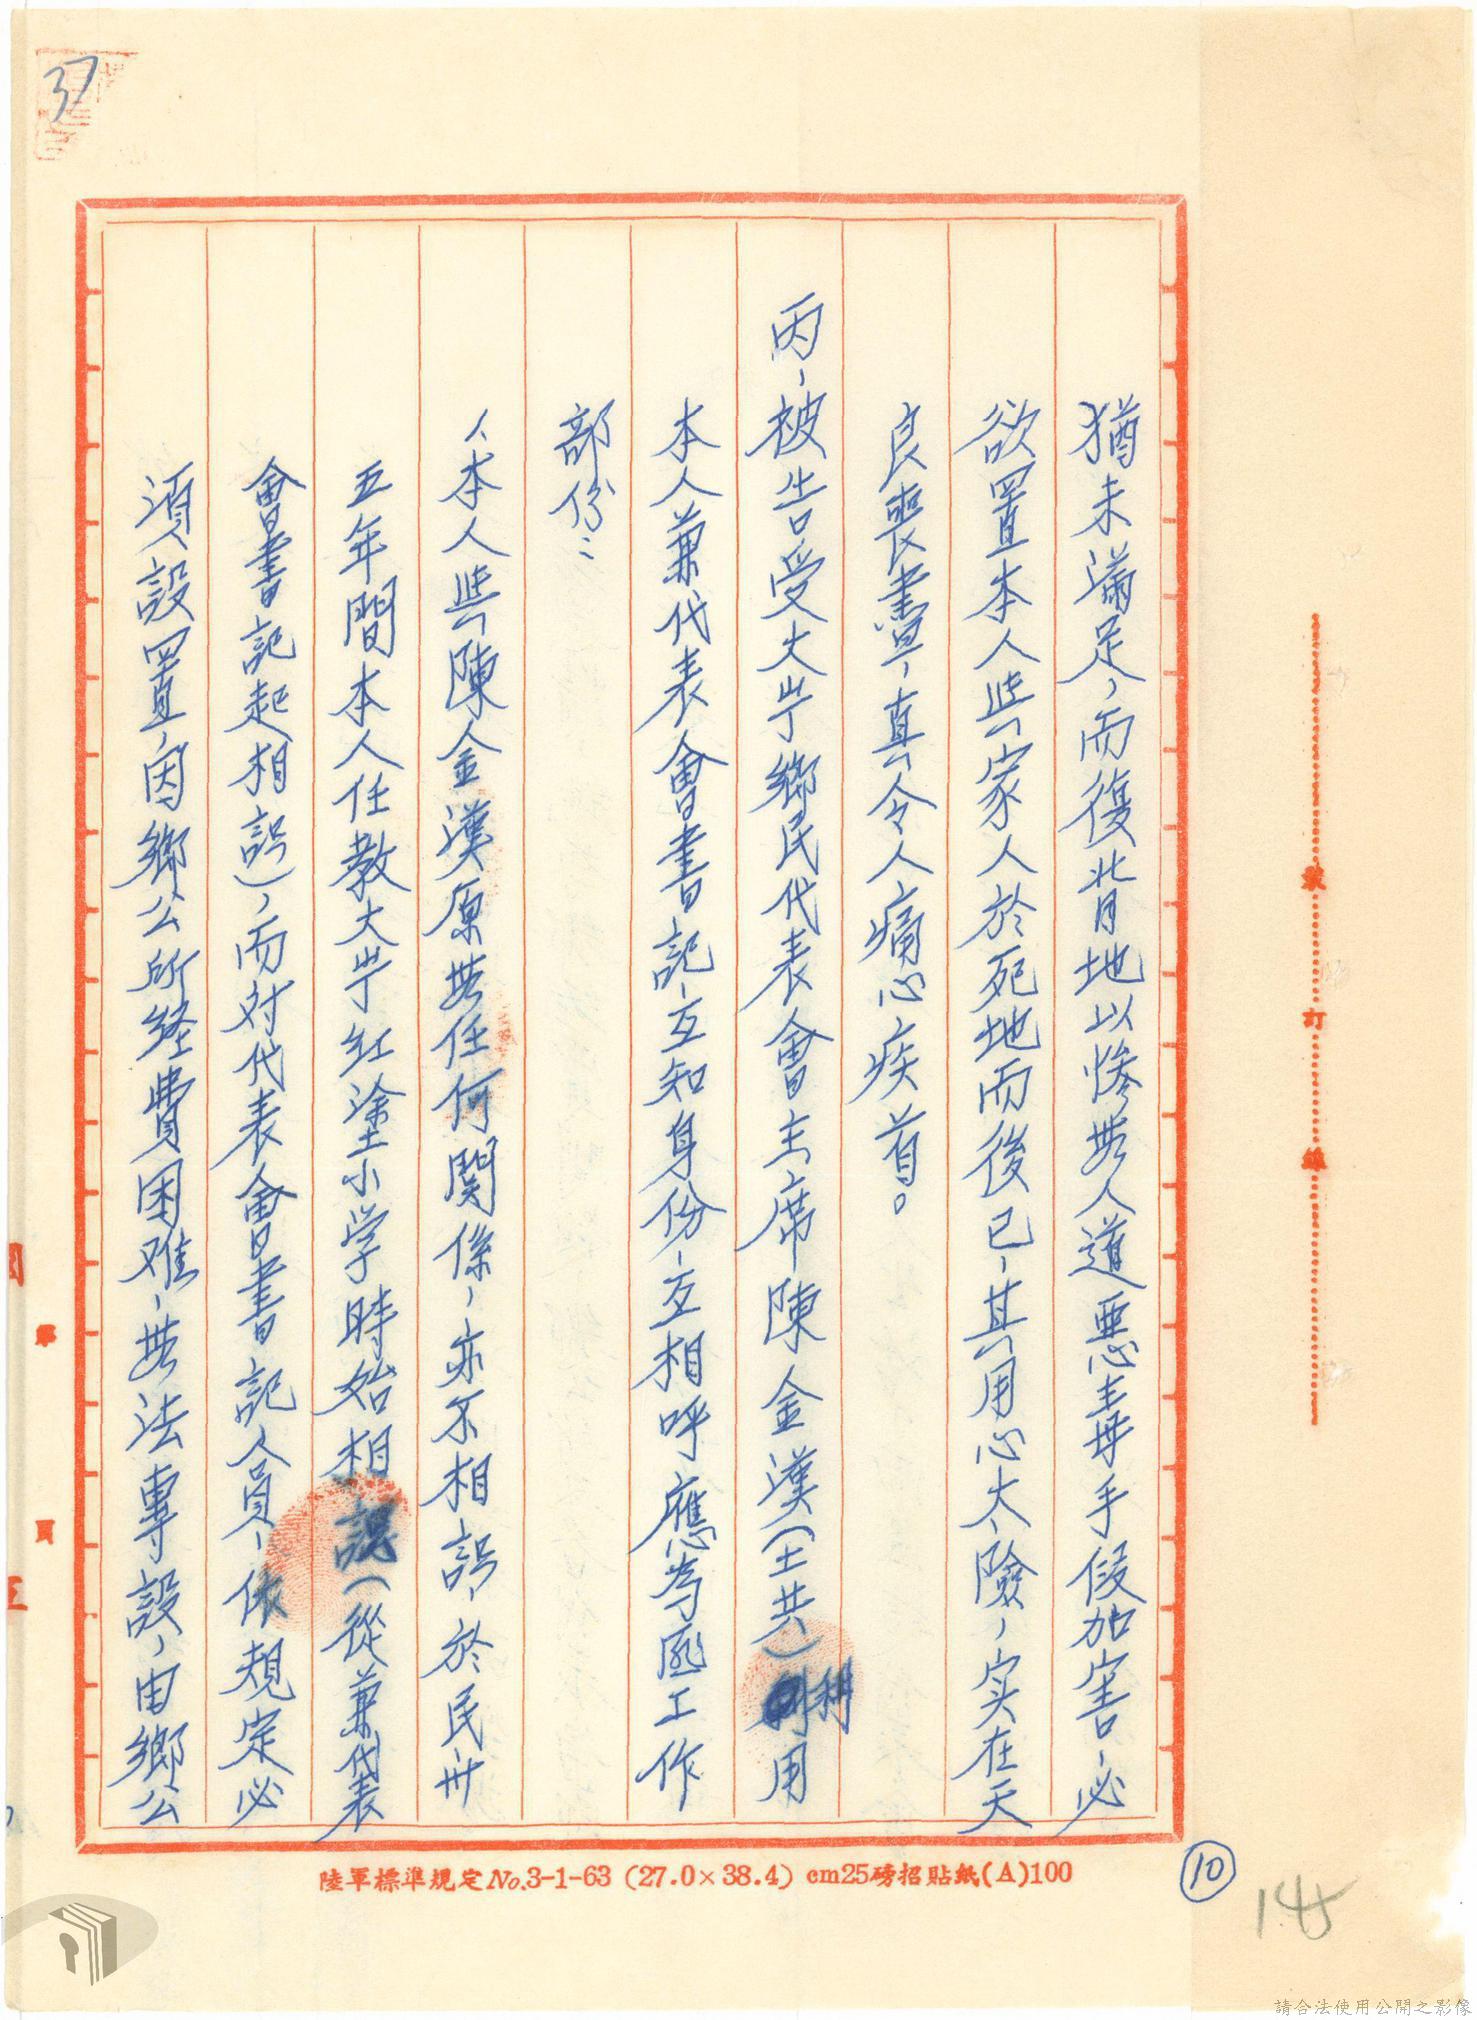 37
猶未滿足，而復背地以慘無人道惡毒手假加害，必
欲置本人與家人於死地而後已，其用心大險，实在天
良喪盡，真令人痛心疾首。
丙，被告受大肚鄉民代表會主席陳金漢(士共)利用
本人兼代表會書記，互知身份，互相呼應為匪工作
部份：
人本人與陳金漢原無任何関係，亦不相認，於民卅
五年間本人任教大肚紅塗小学時始相識(從兼代表
會書記起相認)，而対代表會書記人員，依規定必
須設置，因鄉公所経費困难，無法專設，由鄉公
第 頁
裝 訂 線
陸軍標準規定No.3-1-63 (27.0×38.4) cm25磅招貼紙(A)100
10
145
請合法使用公開之影像